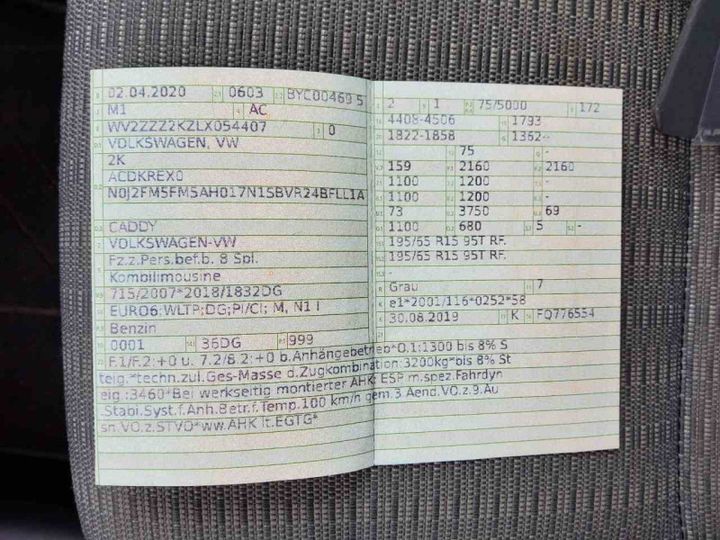 02.04.2020 0603 BYC00469 5
M1 AC
WV2ZZZ2KZLX054407 0
VOLKSWAGEN, VW
2K
ACDKREX0
N0J2FM5FM5AH017N1SBVR24BFLL1A
CADDY
VOLKSWAGEN-VW
Fz.z.Pers.bef.b. 8 Spl.
Kombilimousine
715/2007*2018/1832DG
EURO6;WLTP;DG;PI/CI; M, N1 I
Benzin
0001 36DG 999
F.1/F.2:+0 u. 7.2/8.2:+0 b.Anhängebetrieb*O.1:1300 bis 8% S
teig.*techn.zul.Ges-Masse d.Zugkombination:3200kg*bis 8% St
eig.:3460*Bei werkseitig montierter AHK: ESP m.spez.Fahrdyn
.Stabi.Syst.f.Anh.Betr.f.Temp.100 km/h gem.3.Aend.VO.z.9.Au
sn.VO.z.STVO*ww.AHK lt.EGTG*
2 1 75/5000 172
4408-4506 1793
1822-1858 1362--
75 -
159 2160 2160
1100 1200 -
1100 1200 -
73 3750 69
1100 680 5 -
195/65 R15 95T RF.
195/65 R15 95T RF.
-
Grau 7
e1*2001/116*0252*58
30.08.2019 K FQ776554